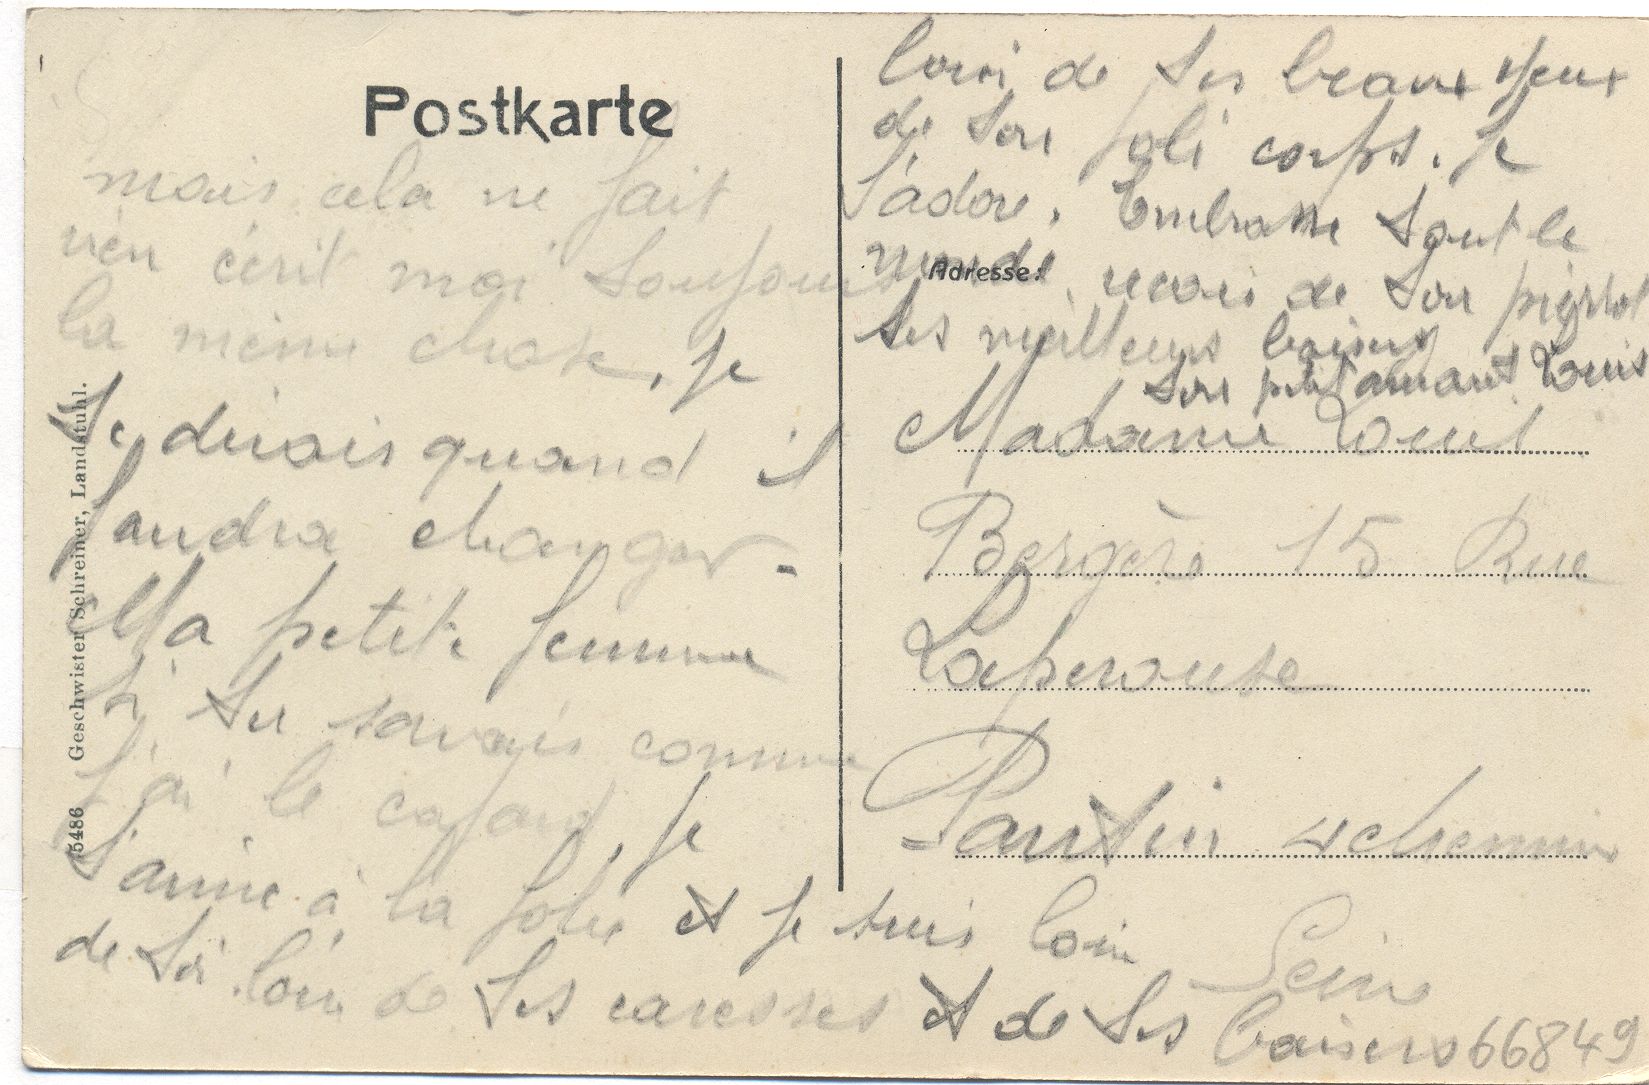 Postkarte
mais cela ne fait
rien écrit moi toujours
la même chose, je
te dirais quand il
faudra changer.
Ma petite femme
si tu savais comme
j'ai le cafard, je
t'aime à la folie et je suis loin
de toi loin de tes caresses et de tes baisers
loin de tes beaux yeux
de ton joli corps. Je
t'adore. Embrasse tout le
monde, recois de ton pierrot
tes meilleurs baisers
ton petit amant Louis
Adresse:
Madame Louis
Bergère 15 Rue
Laperouse
Pantin 4 chemin
Seine
66849
5486 Geschwister Schreiner, Landstuhl.